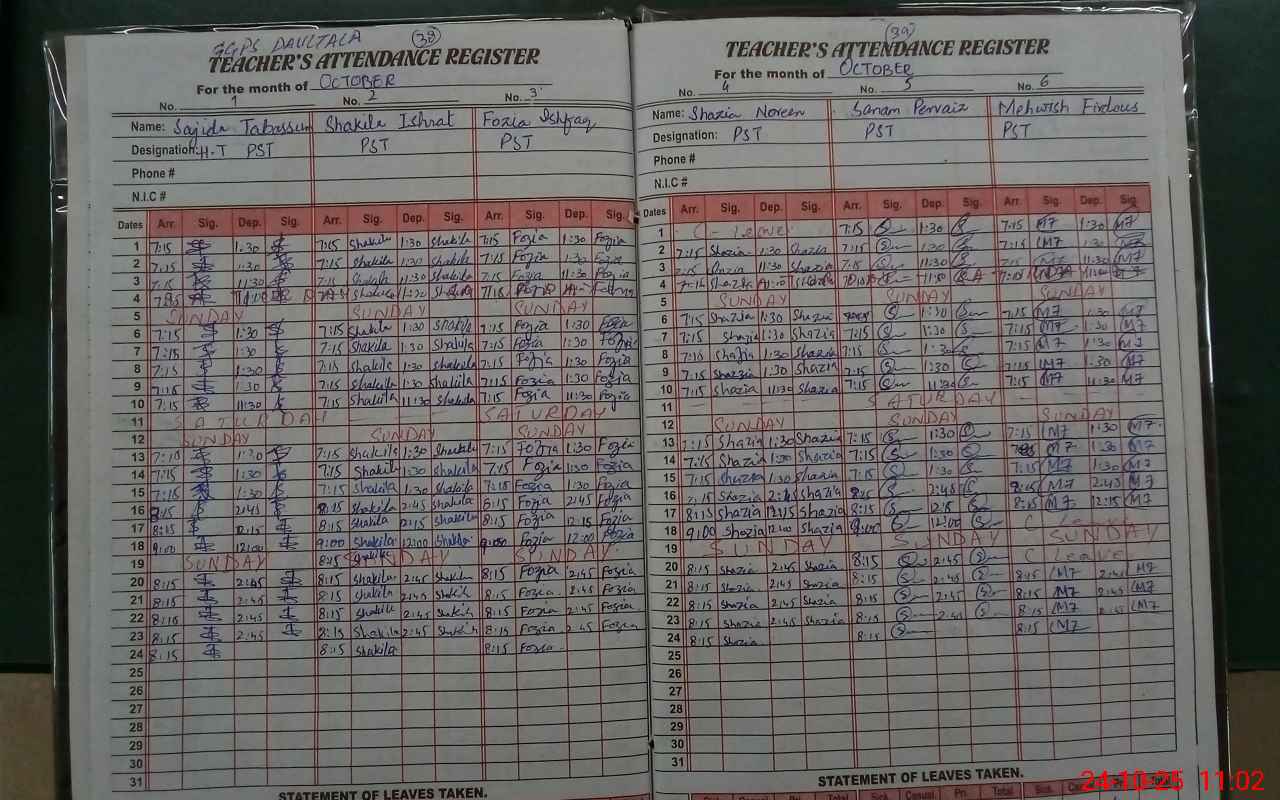 GGPS DAULTALA
38
TEACHER'S ATTENDANCE REGISTER
For the month of OCTOBER
No. 1 No. 2 No. 3
Name: Sajida Tabassum Shakila Ishrat Fozia Ishfaq
Designation: H.T PST PST PST
Phone #
N.I.C #
Dates Arr. Sig. Dep. Sig. Arr. Sig. Dep. Sig. Arr. Sig. Dep. Sig.
1 7:15 1:30 7:15 Shakila 1:30 Shakila 7:15 Fozia 1:30 Fozia
2 7:15 1:30 7:15 Shakila 1:30 Shakila 7:15 Fozia 1:30 Fozia
3 7:15 11:30 7:15 Shakila 11:30 Shakila 7:15 Fozia 11:30 Fozia
4
5 SUNDAY SUNDAY SUNDAY
6 7:15 1:30 7:15 Shakila 1:30 Shakila 7:15 Fozia 1:30 Fozia
7 7:15 1:30 7:15 Shakila 1:30 Shakila 7:15 Fozia 1:30 Fozia
8 7:15 1:30 7:15 Shakila 1:30 Shakila 7:15 Fozia 1:30 Fozia
9 7:15 1:30 7:15 Shakila 1:30 Shakila 7:15 Fozia 1:30 Fozia
10 7:15 11:30 7:15 Shakila 11:30 Shakila 7:15 Fozia 11:30 Fozia
11 SATURDAY SATURDAY
12 SUNDAY SUNDAY SUNDAY
13 7:15 1:30 7:15 Shakila 1:30 Shakila 7:15 Fozia 1:30 Fozia
14 7:15 1:30 7:15 Shakila 1:30 Shakila 7:15 Fozia 1:30 Fozia
15 7:15 1:30 7:15 Shakila 1:30 Shakila 7:15 Fozia 1:30 Fozia
16 8:15 2:45 8:15 Shakila 2:45 Shakila 8:15 Fozia 2:45 Fozia
17 8:15 12:15 8:15 Shakila 12:15 Shakila 8:15 Fozia 12:15 Fozia
18 9:00 12:00 9:00 Shakila 12:00 Shakila 9:00 Fozia 12:00 Fozia
19 SUNDAY 8:15 Shakila SUNDAY SUNDAY
20 8:15 2:45 8:15 Shakila 2:45 Shakila 8:15 Fozia 2:45 Fozia
21 8:15 2:45 8:15 Shakila 2:45 Shakila 8:15 Fozia 2:45 Fozia
22 8:15 2:45 8:15 Shakila 2:45 Shakila 8:15 Fozia 2:45 Fozia
23 8:15 2:45 8:15 Shakila 2:45 Shakila 8:15 Fozia 2:45 Fozia
24 8:15 8:15 Shakila 8:15 Fozia
25
26
27
28
29
30
31
STATEMENT OF LEAVES TAKEN.
39
TEACHER'S ATTENDANCE REGISTER
For the month of OCTOBER
No. 4 No. 5 No. 6
Name: Shazia Noreen Sanam Pervaiz Mehwish Firdous
Designation: PST PST PST
Phone #
N.I.C #
Dates Arr. Sig. Dep. Sig. Arr. Sig. Dep. Sig. Arr. Sig. Dep. Sig
1 C - Leave 7:15 1:30 7:15 M7 1:30 M7
2 7:15 Shazia 1:30 Shazia 7:15 1:30 7:15 M7 1:30 M7
3 7:15 Shazia 11:30 Shazia 7:15 11:30 7:15 M7 11:30 M7
4 7:15 Shazia
5 SUNDAY SUNDAY SUNDAY
6 7:15 Shazia 1:30 Shazia 1:30 7:15 M7 1:30 M7
7 7:15 Shazia 1:30 Shazia 7:15 1:30 7:15 M7 1:30 M7
8 7:15 Shazia 1:30 Shazia 7:15 1:30 7:15 M7 1:30 M7
9 7:15 Shazia 1:30 Shazia 7:15 1:30 7:15 M7 1:30 M7
10 7:15 Shazia 11:30 Shazia 7:15 11:30 7:15 M7 11:30 M7
11 SATURDAY
12 SUNDAY SUNDAY SUNDAY
13 7:15 Shazia 1:30 Shazia 7:15 1:30 7:15 M7 1:30 M7
14 7:15 Shazia 1:30 Shazia 7:15 1:30 M7 1:30 M7
15 7:15 Shazia 1:30 Shazia 7:15 1:30 7:15 M7 1:30 M7
16 Shazia 2:45 Shazia 8:15 2:45 8:15 M7 2:45 M7
17 8:15 Shazia 12:15 Shazia 8:15 8:15 M7 12:15 M7
18 9:00 Shazia 12:00 Shazia 9:00 12:00 C Leave
19 SUNDAY SUNDAY SUNDAY
20 8:15 Shazia 2:45 Shazia 8:15 2:45 C Leave
21 8:15 Shazia 2:45 Shazia 8:15 2:45 8:15 M7 2:45 M7
22 8:15 Shazia 2:45 Shazia 8:15 2:45 8:15 M7 2:45 M7
23 8:15 Shazia 2:45 Shazia 8:15 2:45 8:15 M7 2:45 M7
24 8:15 Shazia 8:15 8:15 M7
25
26
27
28
29
30
31
STATEMENT OF LEAVES TAKEN.
24-10-25 11:02